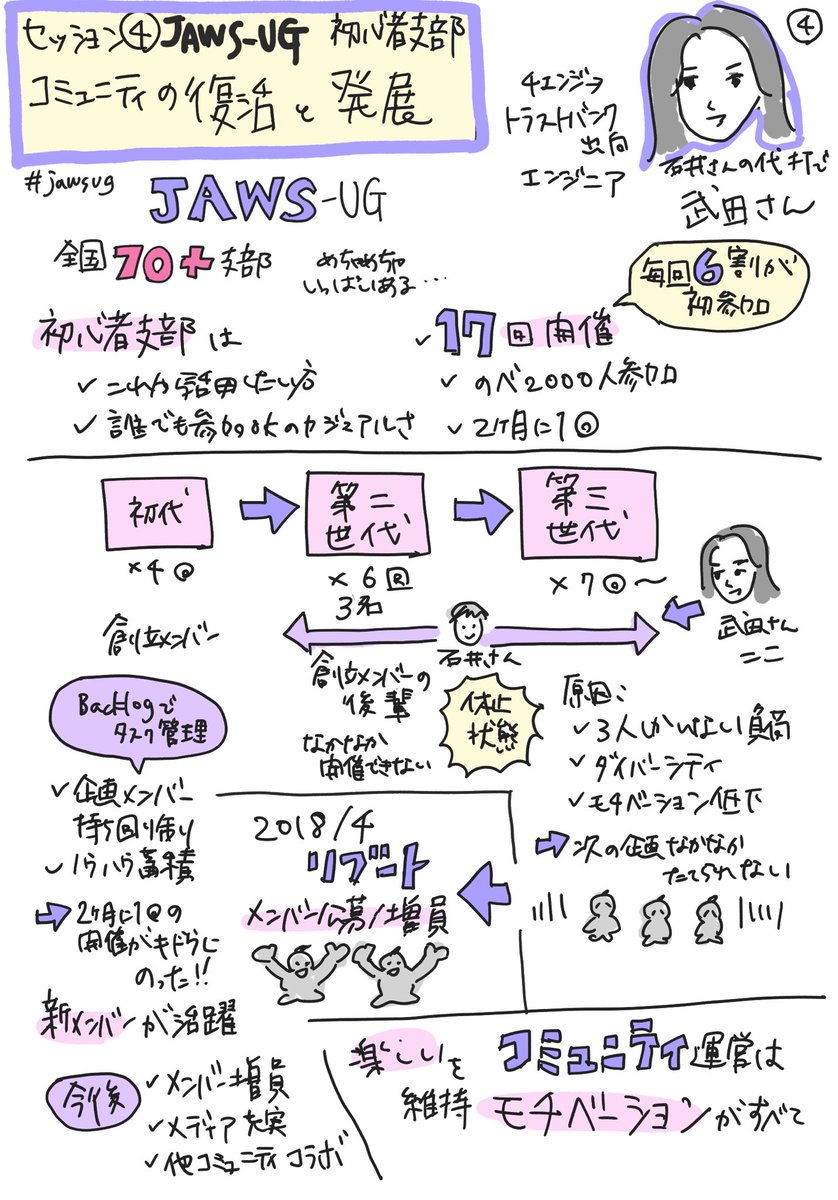 セッション④JAWS-UG 初心者支部
コミュニティの復活と発展
④
4エンジョ
トラストバンク
出向
エンジニア
石井さんの代打で
武田さん
#jawsug
JAWS-UG
全国70+支部
めちゃめちゃ
いっぱいある・・・
毎回6割が
初参加
初心者支部は
✓ これから活用したい方
✓ 誰でも参加okのカジュアルさ
✓ 17回開催
✓ のべ2000人参加
✓ 2ヶ月に1回
初代
×4回
第二
世代
×6回
3名
第三
世代
×7回〜
武田さん
ココ
石井さん
創立メンバー
創立メンバーの
後輩
なかなか
開催できない
休止
状態
原因:
✓ 3人しかいない負荷
✓ ダイバーシティ
✓ モチベーション低下
次の企画なかなか
たてられない
2018/4
リブート
メンバー公募/増員
Backlogで
タスク管理
✓ 企画メンバー
持ち回り制
✓ ノウハウ蓄積
2ヶ月に1回の
開催がキドウに
のった!!
新メンバーが活躍
今後
✓ メンバー増員
✓ メディア充実
✓ 他コミュニティコラボ
楽しいを
維持
コミュニティ運営は
モチベーションがすべて